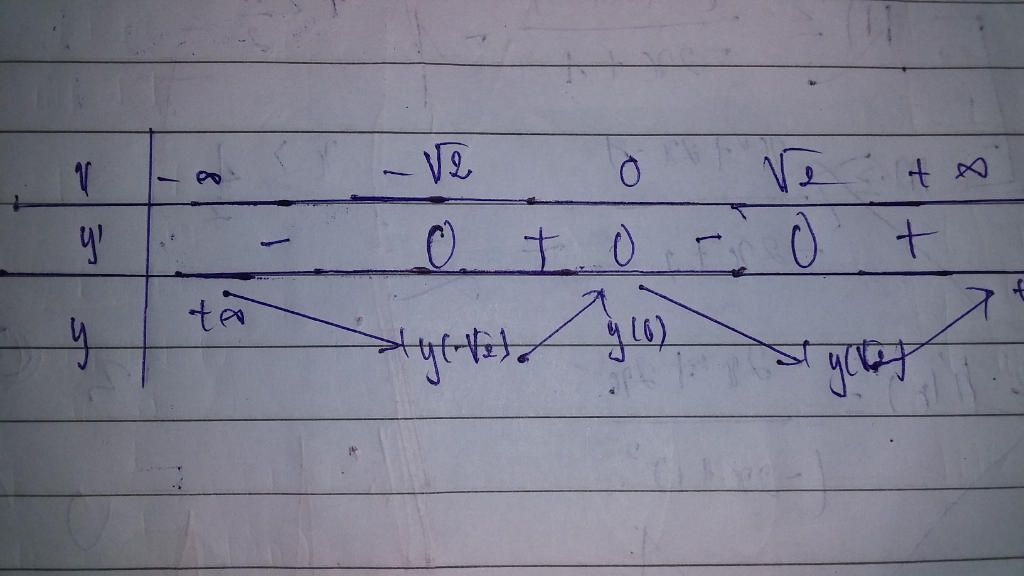 x - ∞ - √2 0 √2 + ∞
y' - 0 + 0 - 0 +
y +∞ y(-√2) y(0) y(√2) +